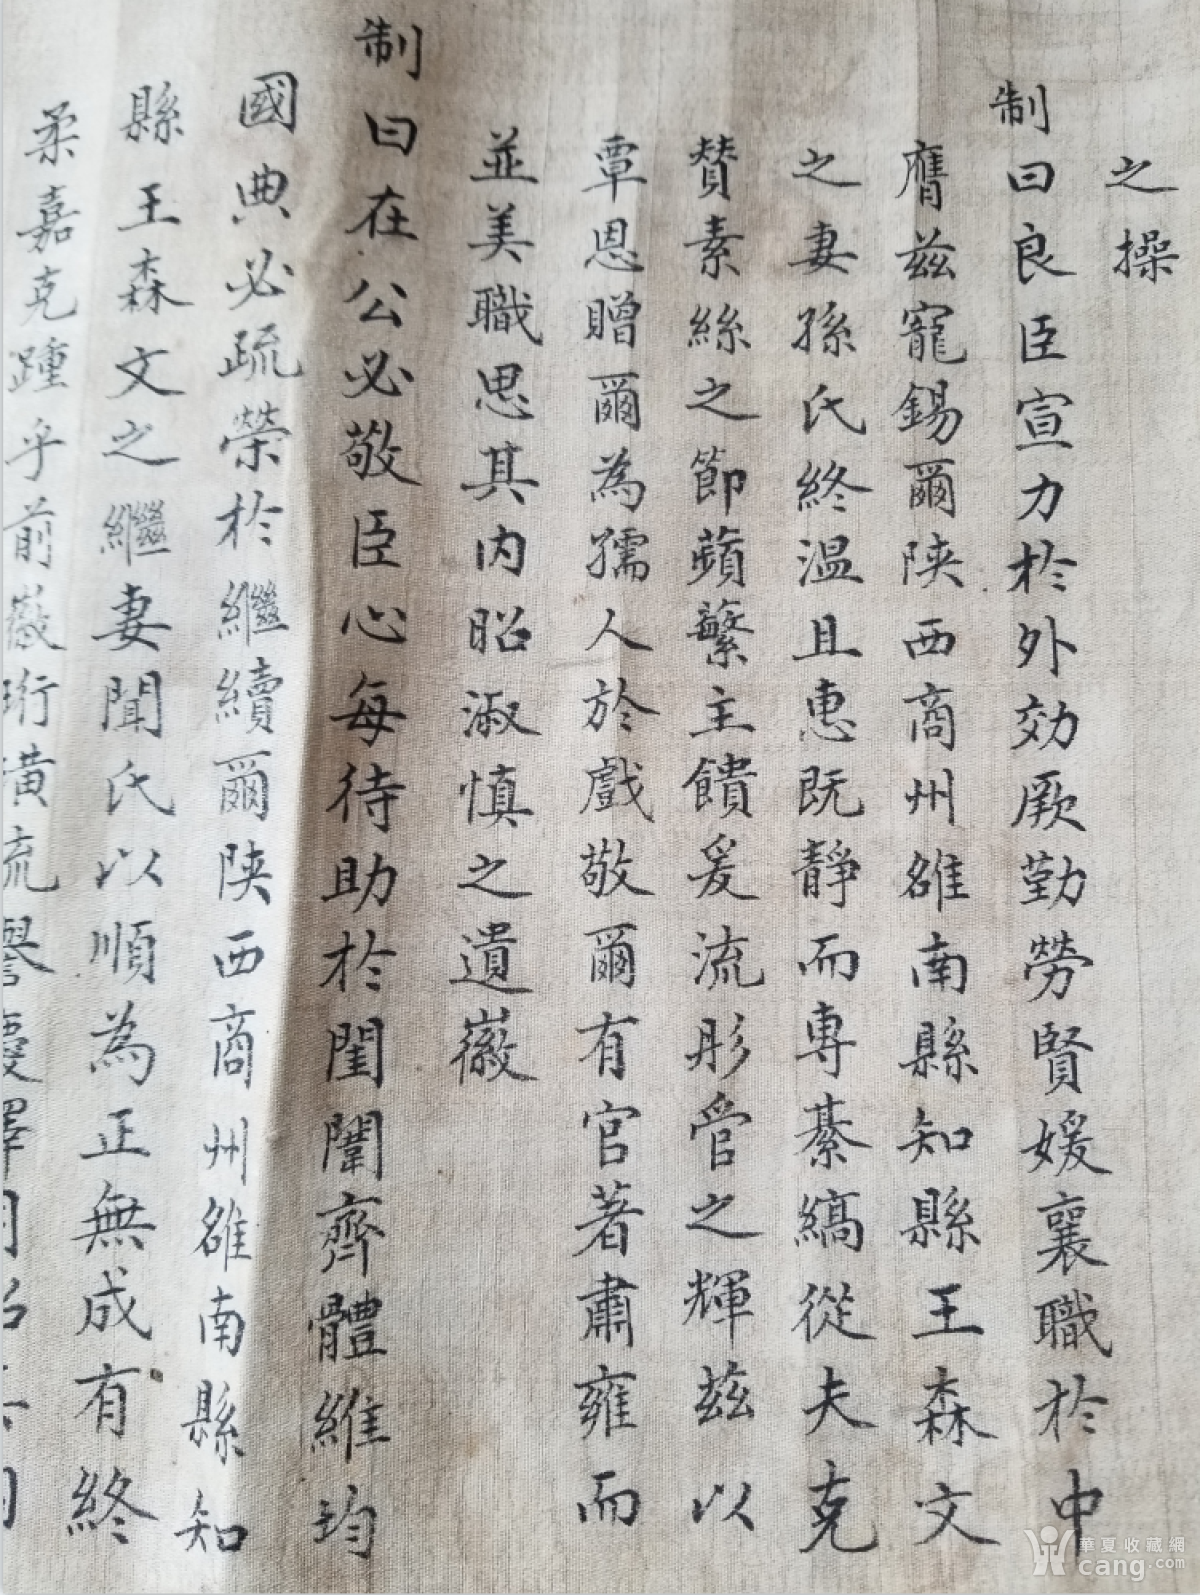 之操
制曰良臣宣力於外効厥勤勞賢媛襄職於中
膺兹寵錫爾陝西商州雒南縣知縣王森文
之妻孫氏終温且惠既靜而專綦縞從夫克
賛素絲之節蘋蘩主饋爰流彤管之輝兹以
覃恩贈爾為孺人於戲敬爾有官著肅雍而
並美職思其内昭淑慎之遺徽
制曰在公必敬臣心每待助於閨闈齊體維均
國典必疏榮於繼續爾陝西商州雒南縣知
縣王森文之繼妻聞氏以順為正無成有終
柔嘉克踵乎前徽珩璜流譽慶澤
華夏收藏網
cang.com